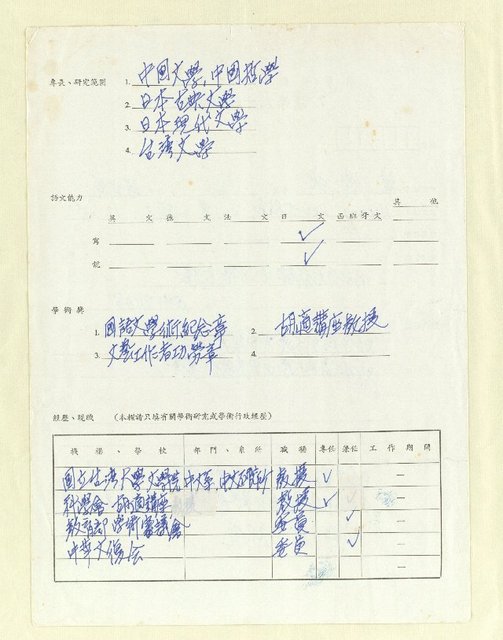 專長、研究範圍
1. 中國文學，中國哲學
2. 日本古典文學
3. 日本現代文學
4. 台灣文學
語文能力
英 文 德 文 法 文 日 文 西班牙文 其 他
寫 ✓
說 ✓
學術獎
1. 國語文學術紀念章 2. 胡適講座教授
3. 文藝工作者功勞章 4.
經歷、現職 （本欄請只填有關學術研究或學術行政經歷）
機構、學校 部門、系所 職稱 專任 兼任 工作期間
國立台灣大學文學院 中文系，中文研究所 教授 ✓ —
科學會 胡適講座 教授 ✓ —
教育部 學術審議會 委員 ✓ —
中華文復會 委員 ✓ —
—